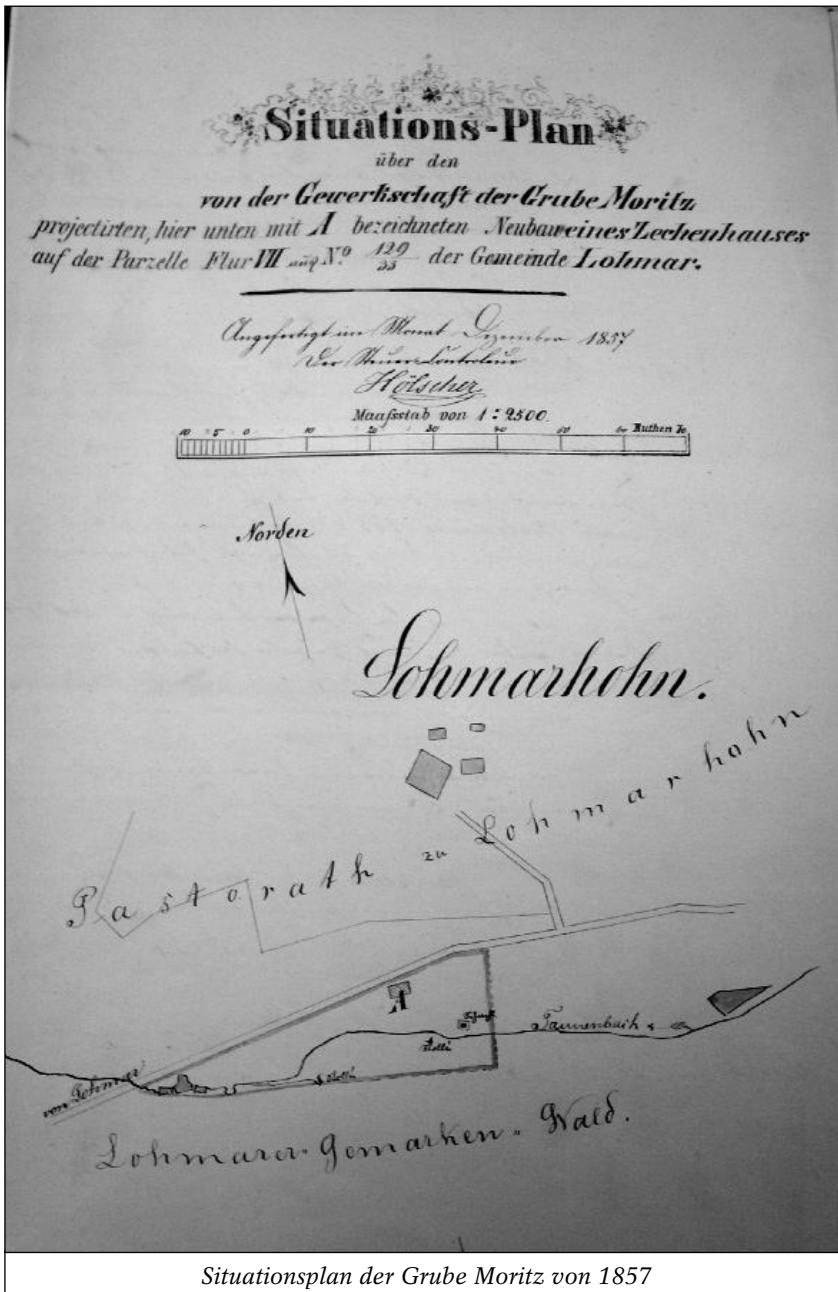 Situations-Plan
über den
von der Gewerkschaft der Grube Moritz
projectirten, hier unten mit A bezeichneten Neubau eines Zechenhauses
auf der Parzelle Flur VII aus No 129/33 der Gemeinde Lohmar.
Angefertigt im Monat Dezember 1857
Der Steuer-Controleur
Hölscher
Maaßstab von 1:2500.
10 5 0 10 20 30 40 50 60 Ruthen 70
Norden
Lohmarhohn.
Pastorath zu Lohmarhohn
A
Tannenbach
von Lohmar
Lohmarer-Gemarken-Wald.
Situationsplan der Grube Moritz von 1857